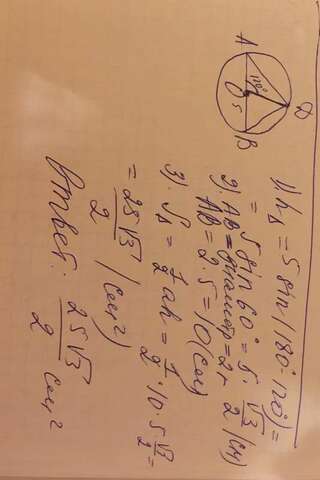 A
120°
O
5
D
B
1) h△ = 5 sin (180° 120°) =
= 5 sin 60° = 5 · √3/2 (см)
2) AB = диаметр = 2r
AB = 2 · 5 = 10 (см)
3) S△ = 1/2 ah = 1/2 · 10 · 5 √3/2 =
= 25√3/2 (см²)
Ответ: 25√3/2 см²